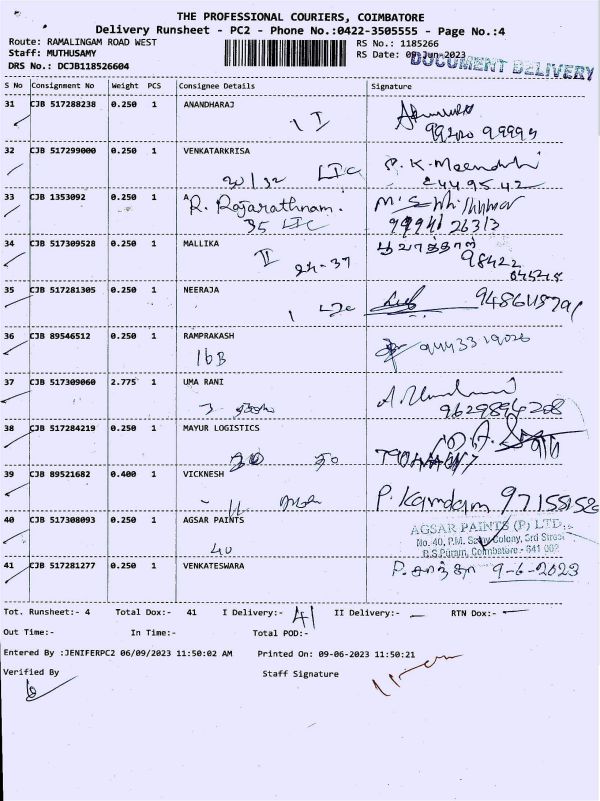 THE PROFESSIONAL COURIERS, COIMBATORE
Delivery Runsheet - PC2 - Phone No.:0422-3505555 - Page No.:4
Route: RAMALINGAM ROAD WEST RS No.: 1185266
Staff: MUTHUSAMY RS Date: 09-Jun-2023
DOCUMENT DELIVERY
DRS No.: DCJB118526604
S No Consignment No Weight PCS Consignee Details Signature
31 CJB 517288238 0.250 1 ANANDHARAJ
1 I
32 CJB 517299000 0.250 1 VENKATARKRISA
P. K. Meenakshi
30/32 LIC
33 CJB 1353092 0.250 1 A
R. Rajarathnam.
35 LIC
34 CJB 517309528 0.250 1 MALLIKA
II 98422
35 CJB 517281305 0.250 1 NEERAJA
1 LIC
36 CJB 89546512 0.250 1 RAMPRAKASH
16B 9443319026
37 CJB 517309060 2.775 1 UMA RANI
9629894208
38 CJB 517284219 0.250 1 MAYUR LOGISTICS
39 CJB 89521682 0.400 1 VICKNESH
P. Kamdam
40 CJB 517308093 0.250 1 AGSAR PAINTS
40
AGSAR PAINTS (P) LTD.,
No. 40, P.M. Samy Colony, 3rd Street
R.S.Puram, Coimbatore - 641 002
41 CJB 517281277 0.250 1 VENKATESWARA
P. சாந்தா 9-6-2023
Tot. Runsheet:- 4 Total Dox:- 41 I Delivery:- 41 II Delivery:- RTN Dox:-
Out Time:- In Time:- Total POD:-
Entered By :JENIFERPC2 06/09/2023 11:50:02 AM Printed On: 09-06-2023 11:50:21
Verified By Staff Signature